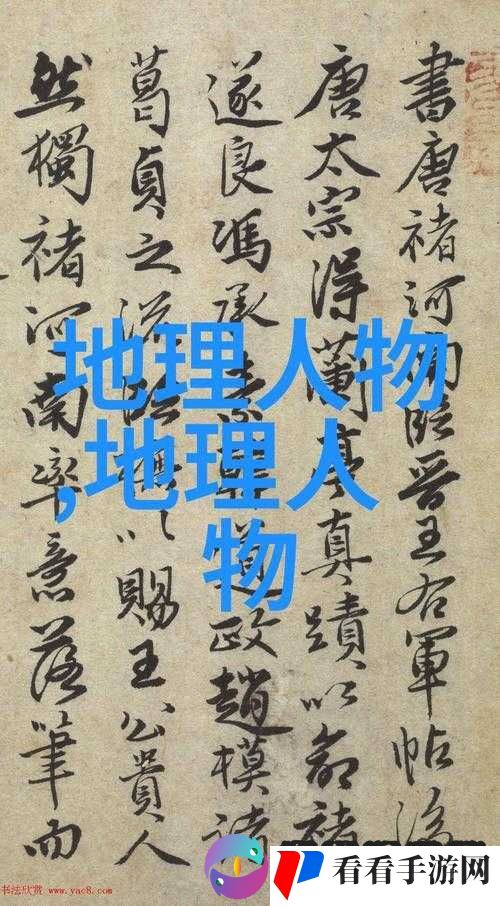 書唐褚河南臨晉王右軍帖後
唐太宗得蘭亭真蹟以命褚
遂良馮承素韓道政趙模諸
葛貞之流臨搨以賜王公貴人
然獨褚河南率意落筆而
地理人物
,地理人
物
书法欣赏 www.yac8.com
看看手游网